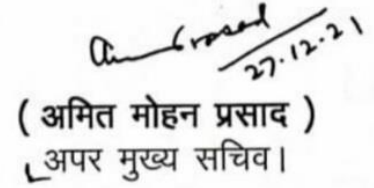 27.12.21
( अमित मोहन प्रसाद )
अपर मुख्य सचिव।